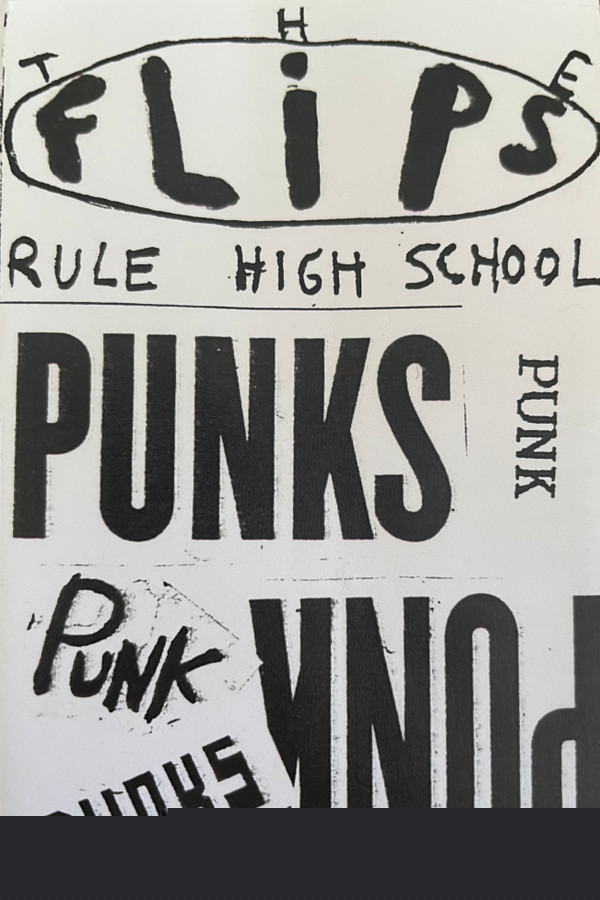 THE
FLiPS
RULE HIGH SCHOOL
PUNKS
PUNK
PUNK
PUNK
PUNKS